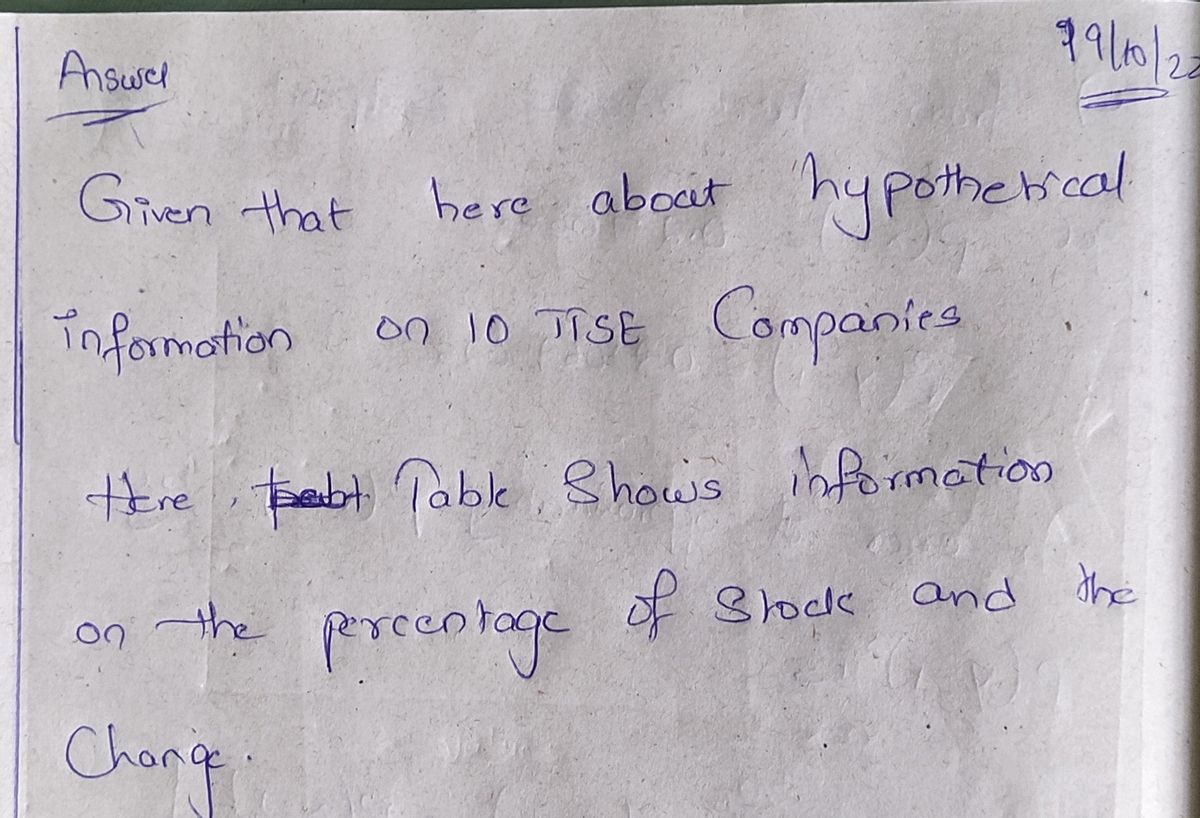 19/10/22
Answer
Given that here about hypothetical
information on 10 TTSE Companies
Here, Table Shows information
on the percentage of Stock and the
Change.